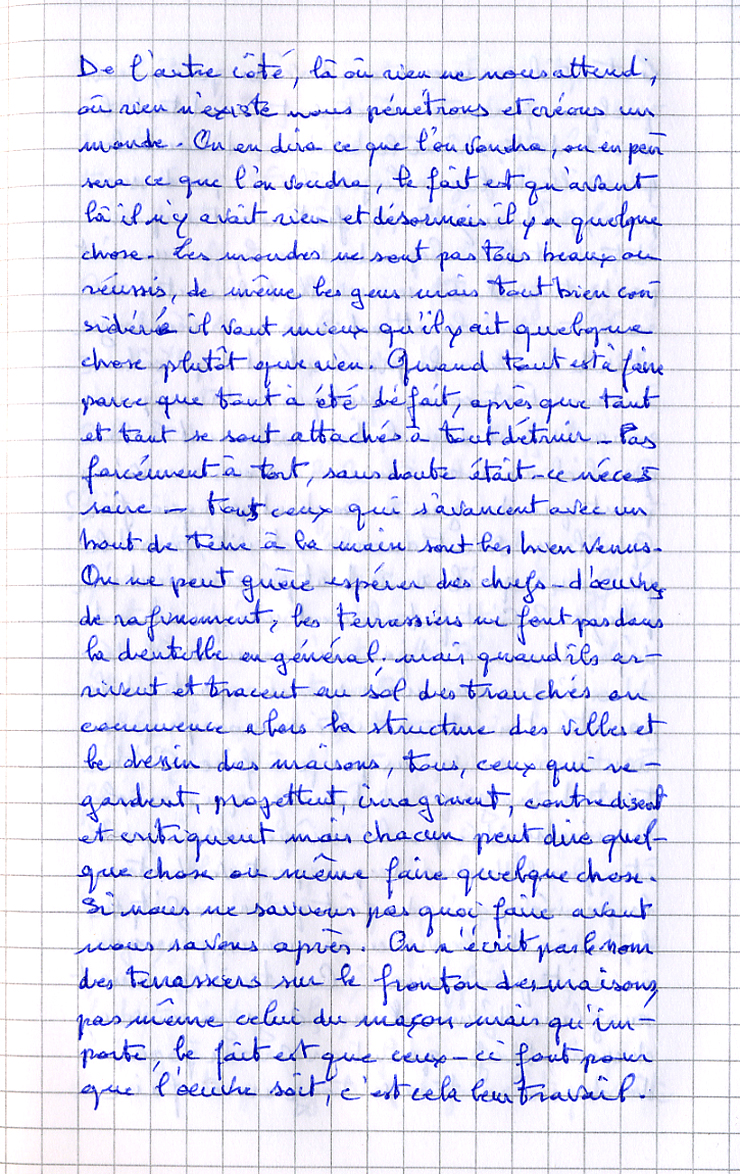 De l'autre côté, là où rien ne nous attend,
où rien n'existe nous pénétrons et créons un
monde. On en dira ce que l'on voudra, on en pen
sera ce que l'on voudra, le fait est qu'avant
là il n'y avait rien et désormais il y a quelque
chose. Les mondes ne sont pas tous beaux ou
réussis, de même les gens mais tout bien con
sidéré il vaut mieux qu'il y ait quelque
chose plutôt que rien. Quand tout est à faire
parce que tout à été défait, après que tant
et tant se sont attachés à tout détruir - Pas
forcément à tort, sans doute était-ce néces
saire - tous ceux qui s'avancent avec un
bout de terre à la main sont les bien venus.
On ne peut guère espérer des chefs-d'œuvres
de rafinement, les terrassiers ne font pas dans
la dentelle en général, mais quand ils ar-
rivent et tracent au sol des tranchés on
commence alors la structure des villes et
le dessin des maisons, tous, ceux qui re-
gardent, projettent, imaginent, contredisent
et critiquent mais chacun peut dire quel-
que chose ou même faire quelque chose.
Si nous ne savions pas quoi faire avant
nous savons après. On n'écrit pas le nom
des terrassiers sur le fronton des maisons,
pas même celui du maçon mais qu'im-
porte, le fait est que ceux-ci font pour
que l'œuvre soit, c'est cela leur travail.